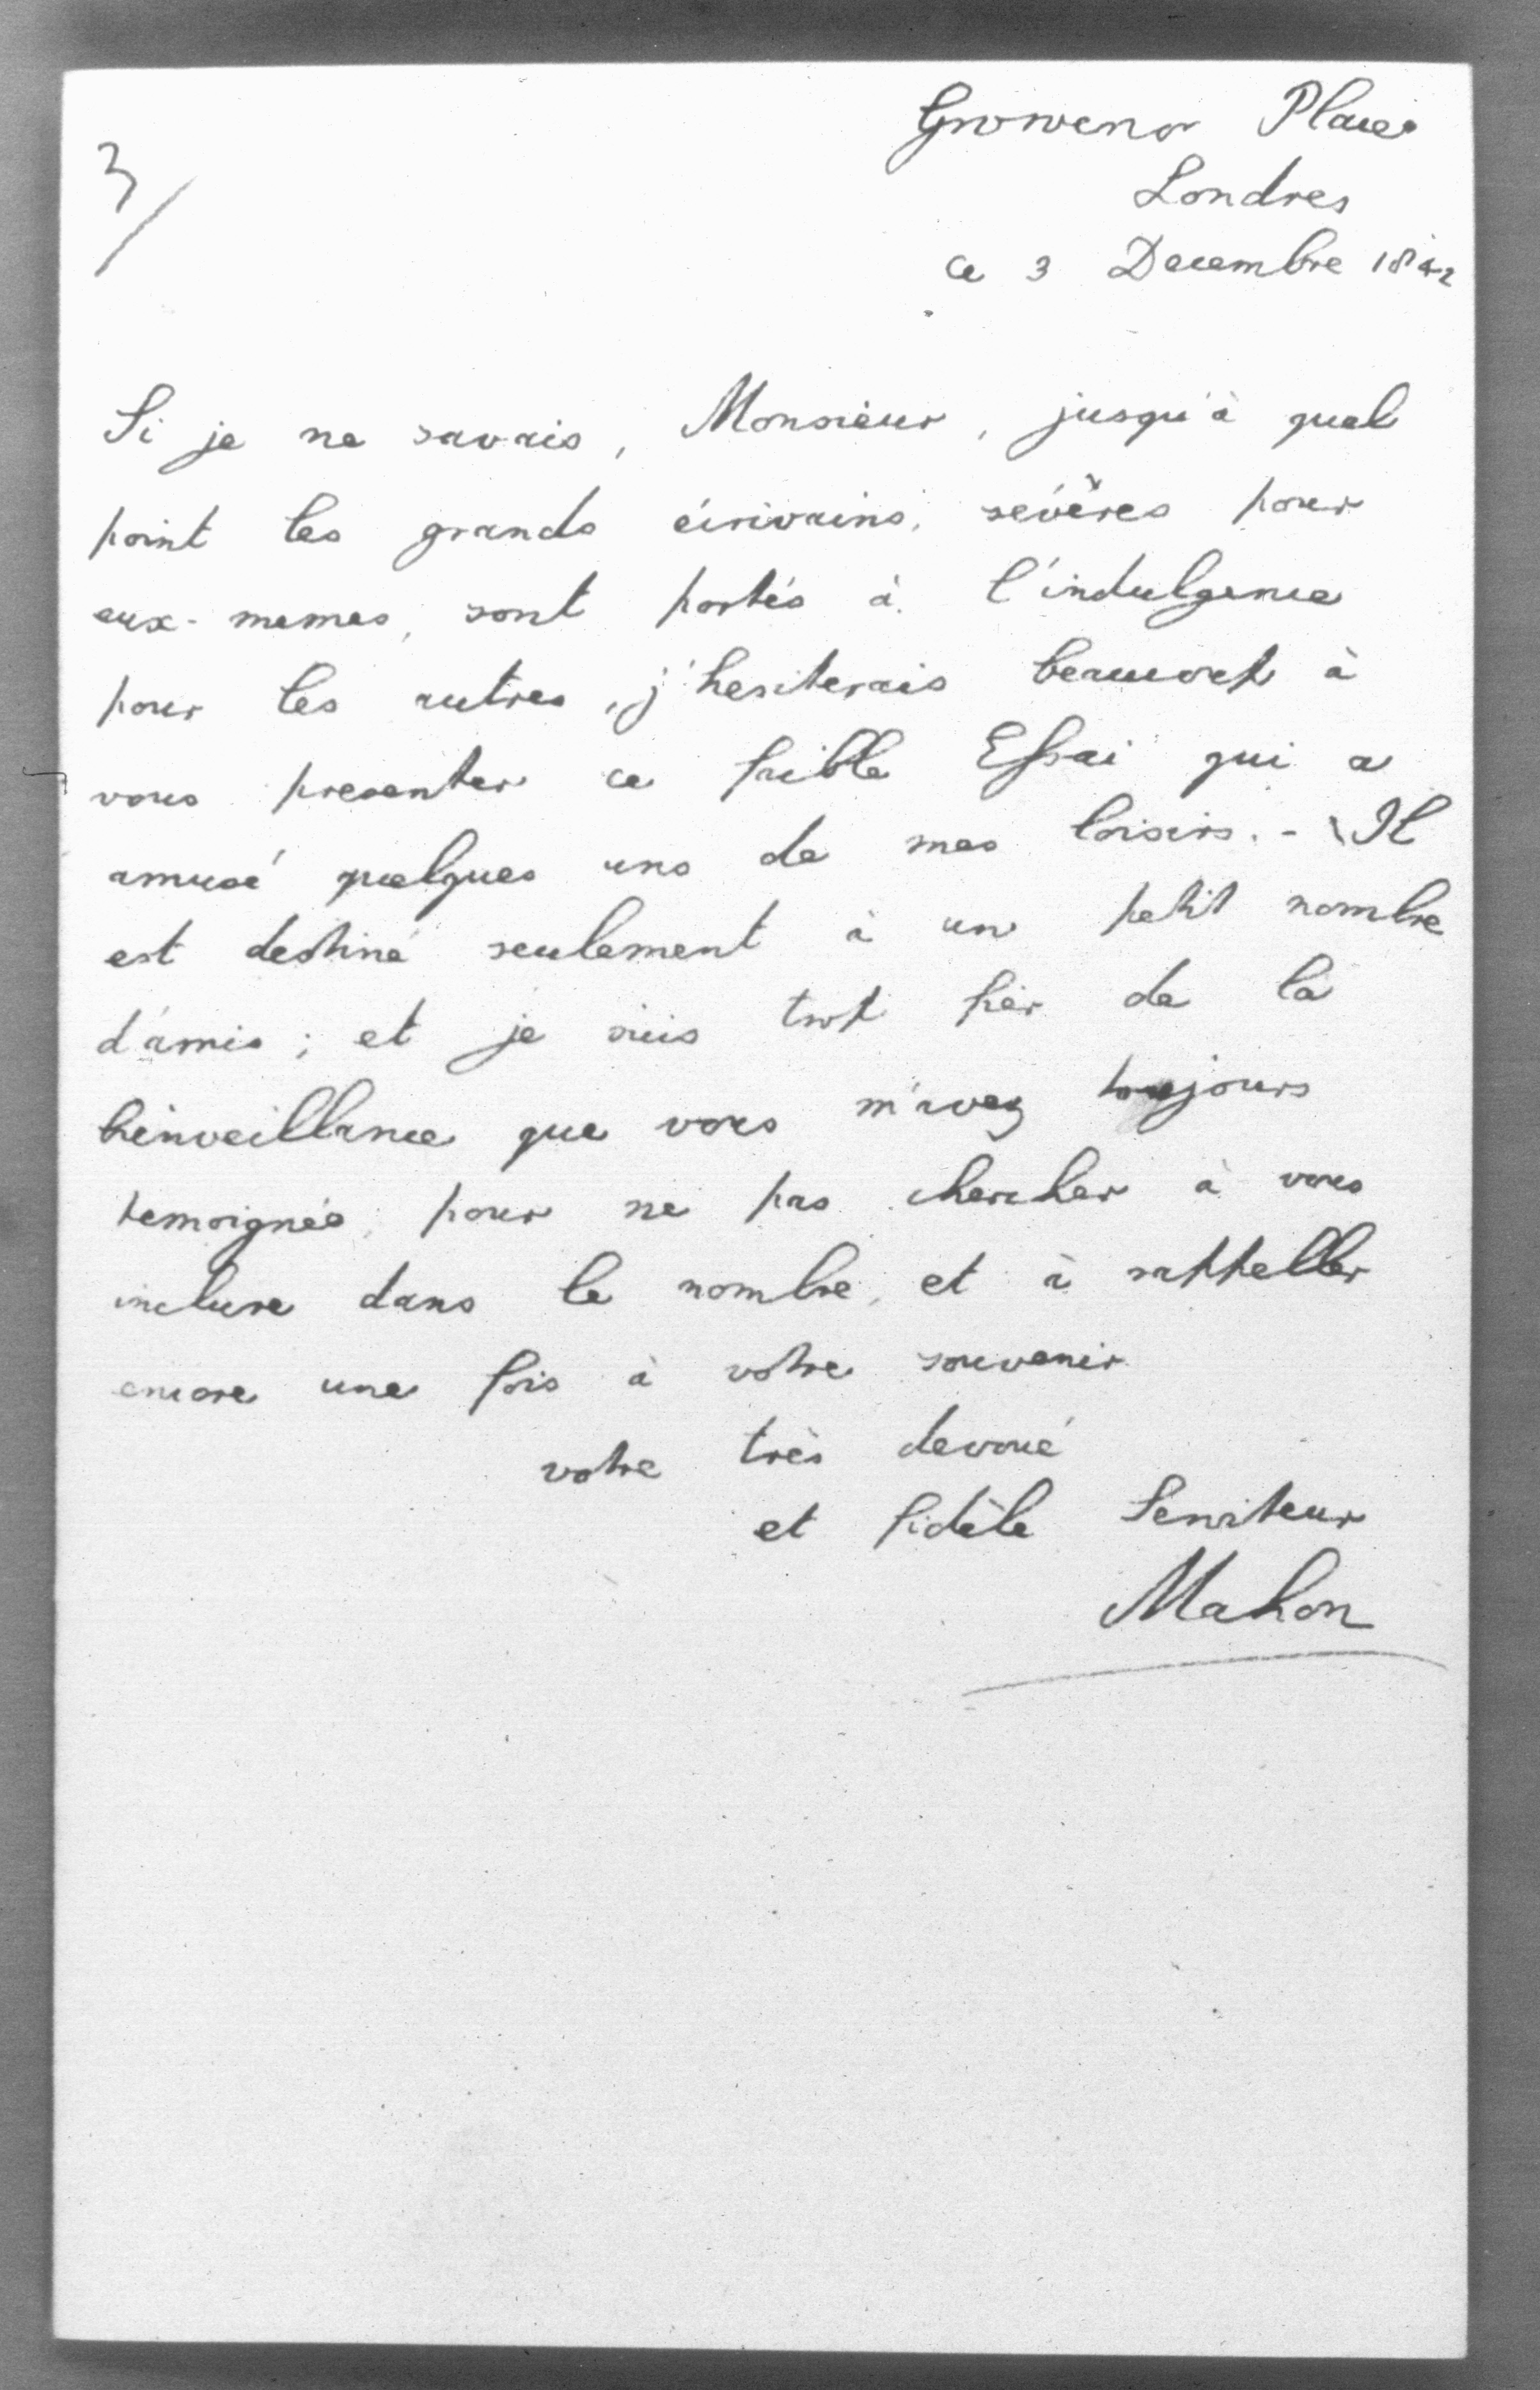 3/
Grosvenor Place
Londres
ce 3 Decembre 1842
Si je ne savais, Monsieur, jusqu'à quel
point les grands écrivains, sévères pour
eux-memes, sont portés à l'indulgence
pour les autres, j'hesiterais beaucoup à
vous presenter ce faible Essai qui a
amusé quelques uns de mes loisirs. - Il
est destiné seulement à un petit nombre
d'amis ; et je suis trop fier de la
bienveillance que vous m'avez toujours
temoignée, pour ne pas chercher à vous
inclure dans le nombre, et à rappeller
encore une fois à votre souvenir
votre très devoué
et fidèle Serviteur
Mahon